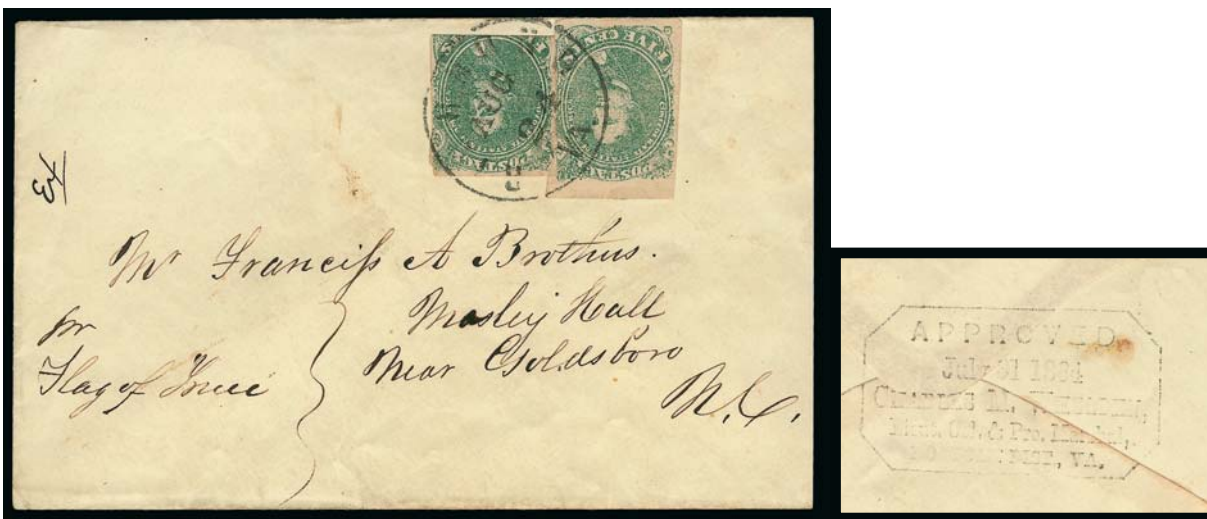 FIVE CENTS
POSTAGE
FIVE CENTS
POSTAGE
AUG
VA.
Ex
Mr Franciss A Brothus.
Mosley Hall
Near Goldsboro
N.C.
pr
Flag of Truce
APPROVED
July 31 1864
CHARLES M.
Lieut. Col. & Pro. Marshal,
VA.